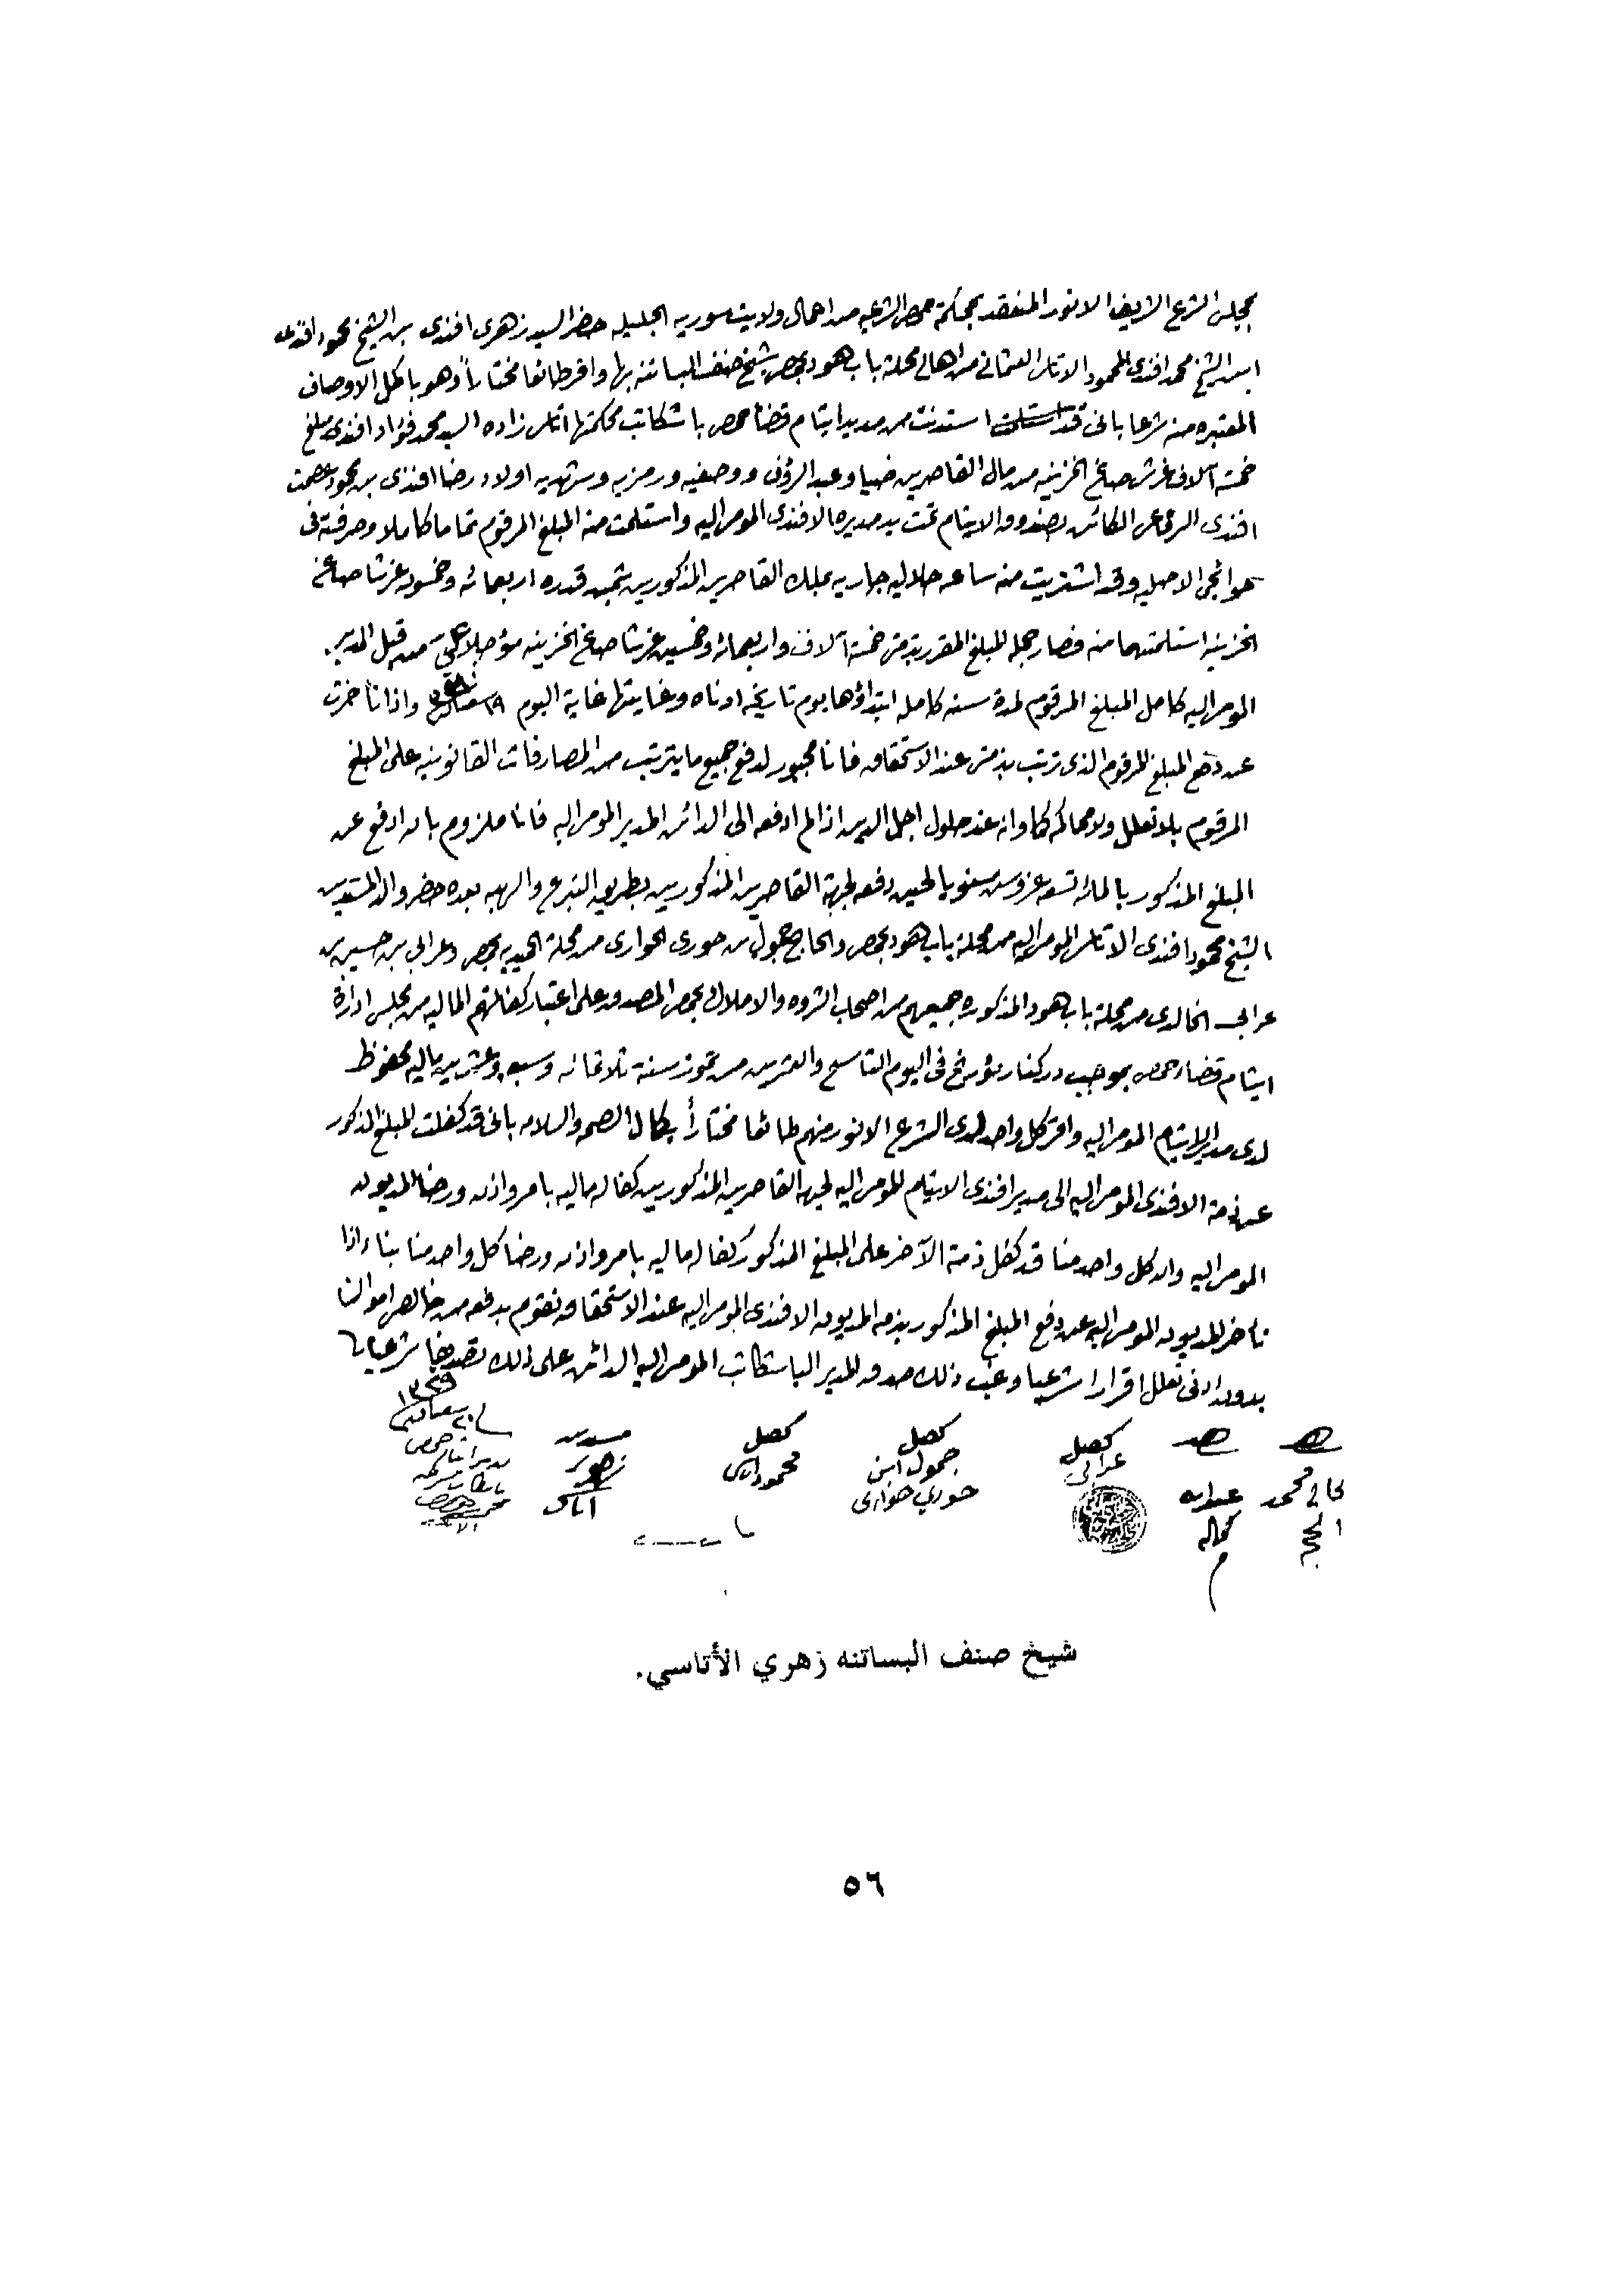 بمجلس الشرع الشريف الانور المنعقد بمحكمة حمص الشرعيه من اعمال ولاية سوريه الجليله حضر السيد زهرى افندى بن الشيخ محمود افندى
ابن الشيخ محمد افندى المحمود الاتاسى العثمانى من اهالى محلة باب هود بحمص شيخ صنف البساتنه بها واقر طائعا مختاراً وهو باكمل الاوصاف
المعتبره منه شرعا بانى قد استدنت من مدير ايتام قضا حمص باشكاتب محكمتها اتاسى زاده السيد محمد فؤاد افندى مبلغ
خمسة آلاف غرش صاغ الخزينه من مال القاصرين ضيا وعبد الرؤف ووصفيه ورمزيه وشهديه اولاد رضا افندى بن محمود عصمت
افندى الرفاعى الكائن بصندوق الايتام تحت يد مديره الافندى المومى اليه واستلمت منه المبلغ المرقوم تماما كاملا وصرفته فى
حوائجى الاصليه وقد اشتريت منه ساعه جاريه بملك القاصرين المذكورين بثمن قدره اربعمائه وخمسون غرشا صاغ
الخزينه استلمتها منه فصار جملة المبلغ المقرر بذمتى خمسة آلاف واربعمائه وخمسين غرشا صاغ الخزينه مؤجلا علي من قبل المدير
المومى اليه كامل المبلغ المرقوم لمدة سنه كامله ابتداؤها يوم تاريخه ادناه وغايتها غاية اليوم ١٩ واذا تأخرت
عن دفع المبلغ المرقوم الذى ترتب بذمتى عند الاستحقاق فانا مجبور لدفع جميع ما يترتب من المصارفات القانونيه على المبلغ
المرقوم بلا تعلل ولا محاكمه كما وانه عند حلول اجل الدين اذا لم ادفعه الى الدائن المدير المومى اليه فانا ملزوم بان ادفع عن
المبلغ المذكور بالمائه تسعه غروش سنويا لحين دفعه لجهة القاصرين المذكورين بطريق التبرع والهبه بعده حضر والد المستدين
الشيخ محمود افندى الاتاسى المومى اليه من محلة باب هود بحمص والحاج جمول بن حورى الحوارى من محلة الحميديه بحمص وعرابي بن حسين بن
عرابى الخالدى من محلة باب هود المذكوره جميعهم من اصحاب الثروه والاملاك بحمص المصدق على اعتبار كفالتهم الماليه من مجلس ادارة
ايتام قضاء حمص بموجب دركنار مؤرخ فى اليوم التاسع والعشرين من تموز سنة ثلاثمائه وسبعه وعشرين ماليه محفوظ
لدى مدير الايتام المومى اليه واقر كل واحد لدى الشرع الانور منهم طائعا مختاراً بكمال الصحه والسلامه بانى قد كفلت المبلغ المذكور
عن ذمة الافندى المومى اليه الى مدير افندى الايتام المومى اليه لجهة القاصرين المذكورين كفاله ماليه بامر واذن ورضا المديون
المومى اليه وان كل واحد منا قد كفل ذمة الآخر على المبلغ المذكور كفاله ماليه بامر واذن ورضا كل واحد منا بناء اذا
تأخر المديون المومى اليه عن دفع المبلغ المذكور بذمة المديون الافندى المومى اليه عند الاستحقاق نقوم بدفعه من خالص اموالنا
بدون ادنى تعلل اقرارا شرعيا وغب ذلك صدق المدير الباشكاتب المومى اليه الدائن على ذلك تصديقا شرعيا
١٣٢٩
كفيل
عرابى
كفيل
جمول ابن
حوري حوارى
كفيل
محمود اتاسى
مستدين
زهرى
اتاسى
شيخ صنف البساتنه زهري الأتاسي.
٥٦